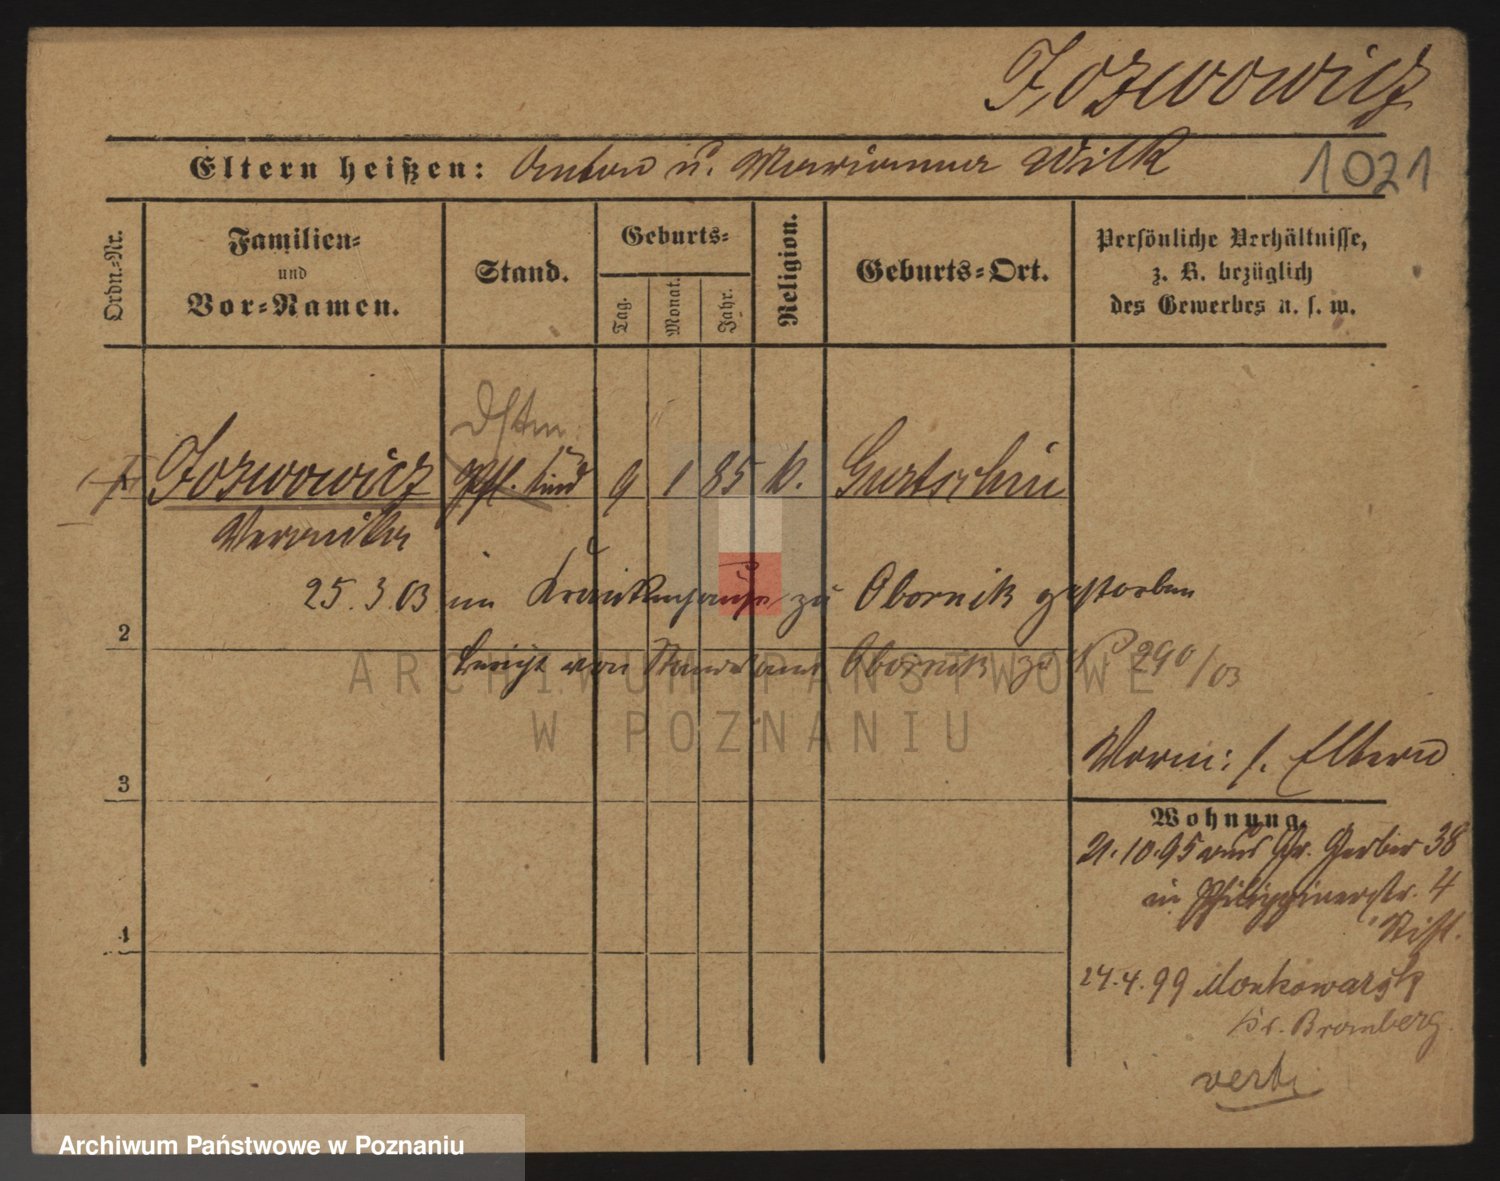 Jozwowicz
Eltern heißen: Anton u. Marianna Wilk 1021
Ordn.-Nr.
Familien- und Vor-Namen.
Stand.
Geburts-
Tag.
Monat.
Jahr.
Religion.
Geburts-Ort.
Persönliche Verhältnisse,
z. B. bezüglich
des Gewerbes u. s. w.
Jozwowicz 9 1 85 k. Gurtschin
Veronika
25.3.03 im Krankenhause zu Obornik gestorben
2
von Standesamt Obornik No 290/03
Vorm: s. Eltern
3
Wohnung.
21.10.95 aus Gr. Gerber 38
in Philippinerstr. 4
Stift.
4
24.4.99 Monkowarsk
Kr. Bromberg
verte
ARCHIWUM PAŃSTWOWE
W POZNANIU
Archiwum Państwowe w Poznaniu